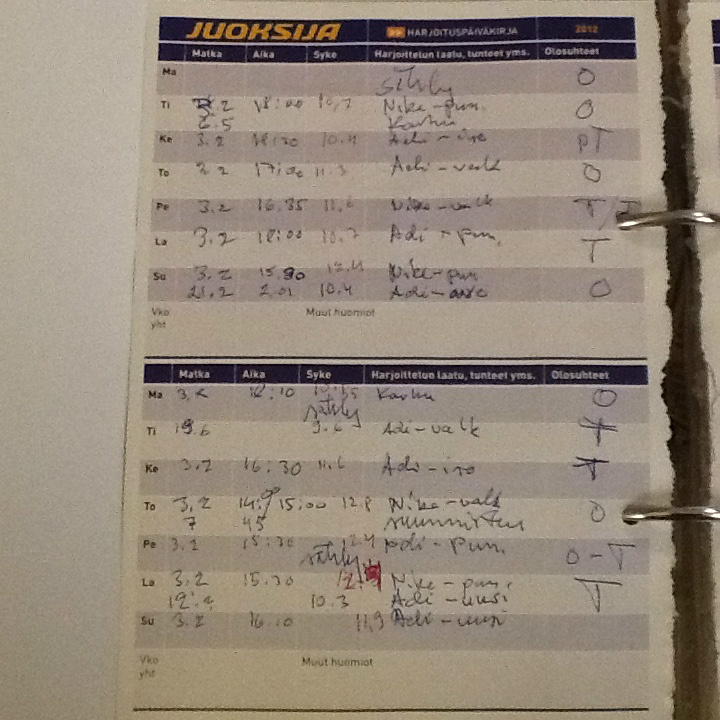 JUOKSIJA HARJOITUSPÄIVÄKIRJA 2012
Matka Aika Syke Harjoittelun laatu, tunteet yms. Olosuhteet
Ma sähly O
Ti 3.2 18:00 10,7 Nike-pun. O
6.5 Karhu
Ke 3.2 18:20 10.4 Adi- PT
To 3.2 17:00 11.3 Adi-valk O
Pe 3.2 16.35 11.6 Nike-valk T/T
La 3.2 18:00 10.7 Adi-pun. T
Su 3.2 15.30 12.4 Nike-pun
21.2 2.01 10.4 Adi- O
Vko yht Muut huomiot
Matka Aika Syke Harjoittelun laatu, tunteet yms. Olosuhteet
Ma 18:10 Karhu O
sähly
Ti 19.6 9.6 Adi-valk T
Ke 3.2 16:30 11.6 Adi-iso T
To 3.2 15:00 12.8 Nike-valk O
7 45 suunnistus
Pe 3.2 15:30 12.4 Adi-pun. O-T
sähly
La 3.2 15.30 Nike-pun. T
10.3 Adi-uusi
Su 3.2 16.10 11,9 Adi-uusi
Vko yht Muut huomiot